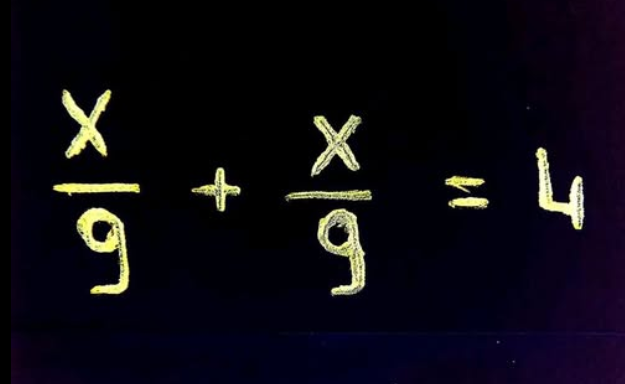 x/9 + x/9 = 4